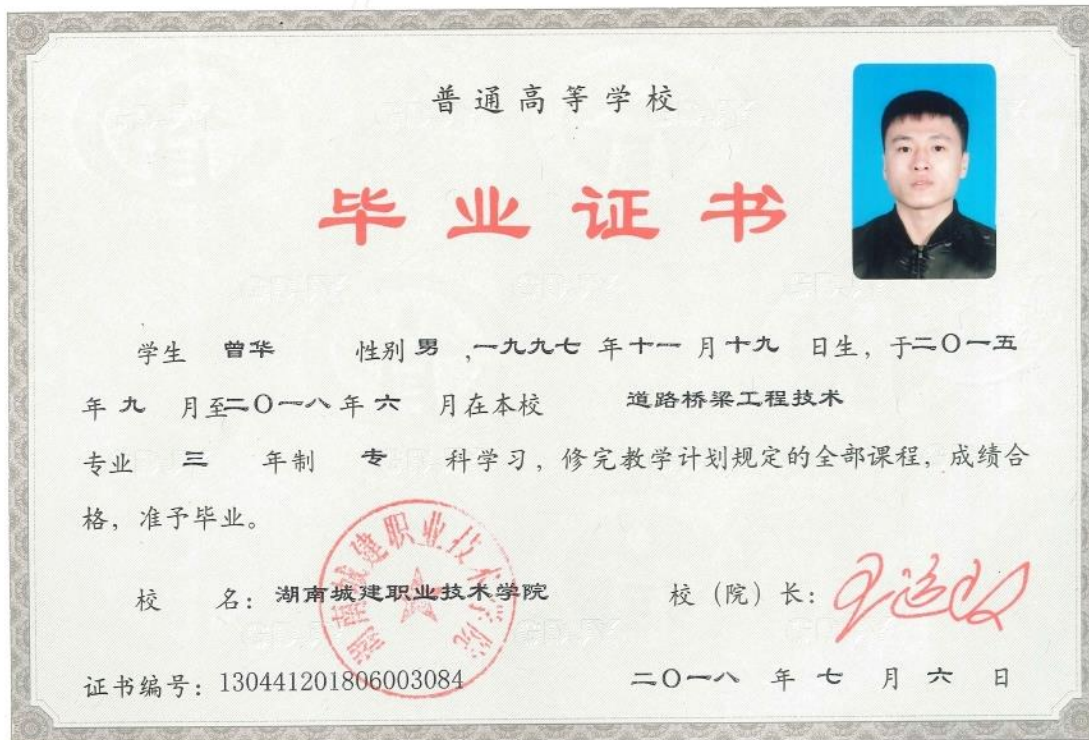 普通高等学校
毕业证书
学生 曾华 性别 男 ,一九九七 年 十一 月 十九 日生，于二〇一五
年 九 月至二〇一八 年 六 月在本校 道路桥梁工程技术
专业 三 年制 专 科学习，修完教学计划规定的全部课程，成绩合
格，准予毕业。
湖南城建职业技术学院
校 名：湖南城建职业技术学院 校（院）长：
证书编号：130441201806003084 二〇一八 年 七 月 六 日